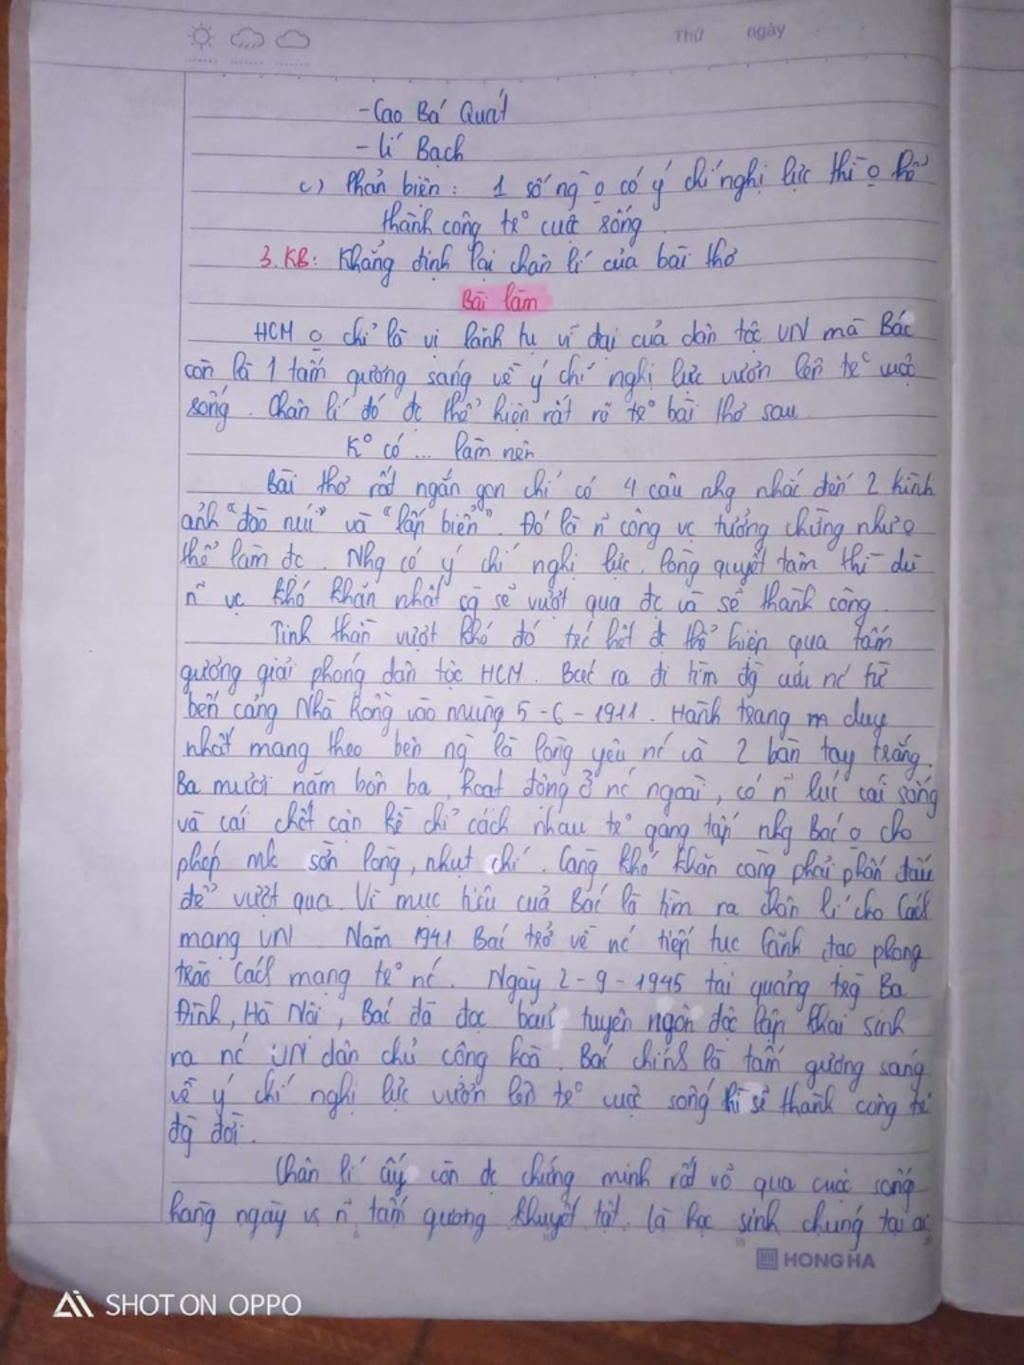 Thứ ngày
- Cao Bá Quát
- Lí Bạch
c) Phản biện: 1 số ng o có ý chí nghị lực thì o thể
thành công tr° cuộc sống
3. KB: Khẳng định lại chân lí của bài thơ
Bài làm
HCM o chỉ là vị lãnh tụ vĩ đại của dân tộc VN mà Bác
còn là 1 tấm gương sáng về ý chí nghị lực vươn lên tr° cuộc
sống. Chân lí đó đc thể hiện rất rõ tr° bài thơ sau
K° có ... làm nên
Bài thơ rất ngắn gọn chỉ có 4 câu nhg nhắc đến 2 hình
ảnh "đào núi" và "lấp biển". Đó là n~ công vc tưởng chừng như o
thể làm đc. Nhg có ý chí nghị lực, lòng quyết tâm thì dù
n~ vc khó khăn nhất cg sẽ vượt qua đc và sẽ thành công.
Tinh thần vượt khó đó trc hết đc thể hiện qua tấm
gương giải phóng dân tộc HCM. Bác ra đi tìm đg cứu nc từ
bến cảng Nhà Rồng vào mùng 5-6-1911. Hành trang m duy
nhất mang theo bên ng là lòng yêu nc và 2 bàn tay trắng.
Ba mươi năm bôn ba, hoạt động ở nc ngoài, có n~ lúc cái sống
và cái chết cận kề chỉ cách nhau tr° gang tấc nhg Bác o cho
phép mk sờn lòng, nhụt chí. Càng khó khăn càng phải phấn đấu
để vượt qua. Vì mục tiêu của Bác là tìm ra chân lí cho Cách
mạng VN. Năm 1941 Bác trở về nc tiếp tục lãnh đạo phong
trào Cách mạng tr° nc. Ngày 2-9-1945 tại quảng trg Ba
Đình, Hà Nội, Bác đã đọc bản tuyên ngôn độc lập khai sinh
ra nc VN dân chủ cộng hoà. Bác chính là tấm gương sáng
về ý chí nghị lực vươn lên tr° cuộc sống thì sẽ thành công tr°
đg đời.
Chân lí ấy còn đc chứng minh rất rõ qua cuộc sống
hàng ngày vs n~ tấm gương khuyết tật. Là học sinh chúng ta ai
HONG HA
SHOT ON OPPO